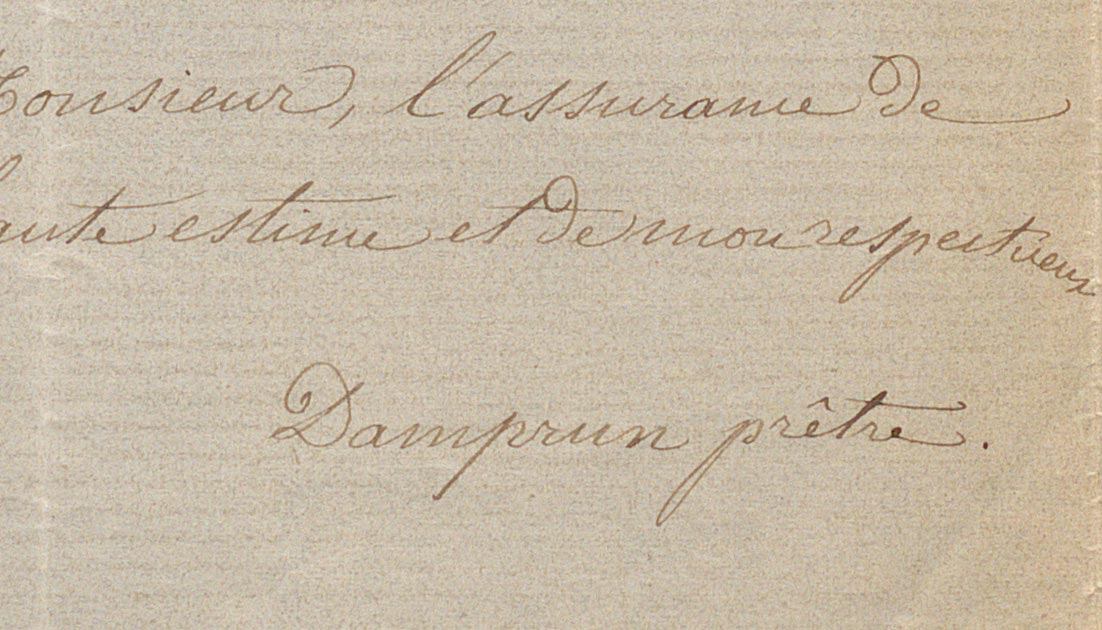 Monsieur, l'assurance de
haute estime et de mon respectueux
Damprun prêtre.